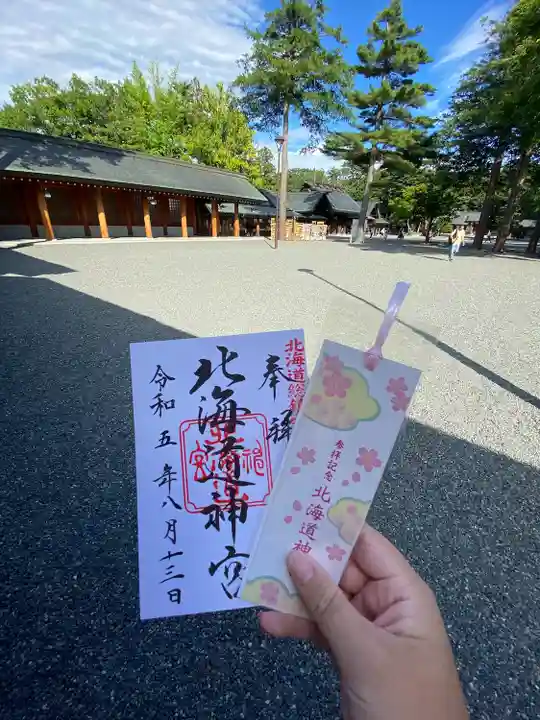 北海道総鎮
奉拝
北海道神宮
令和五年八月十三日
参拝記念
北海道神